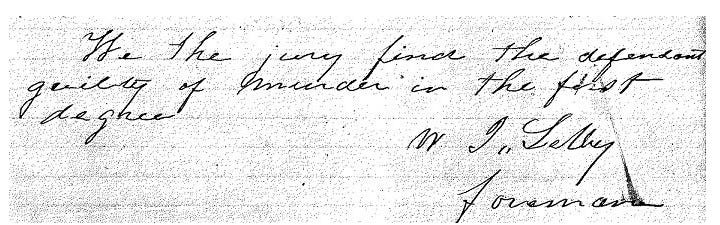 We the jury find the defendant
guilty of murder in the first
degree
W I,, Selby
foreman